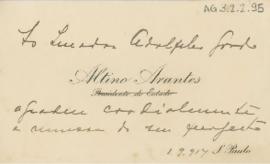 AG 3.2.2.95
Ao Senador Adolpho Gordo
Altino Arantes
Presidente do Estado
agradece cordialmente
a remessa do seu projecto
1.9.917 S. Paulo